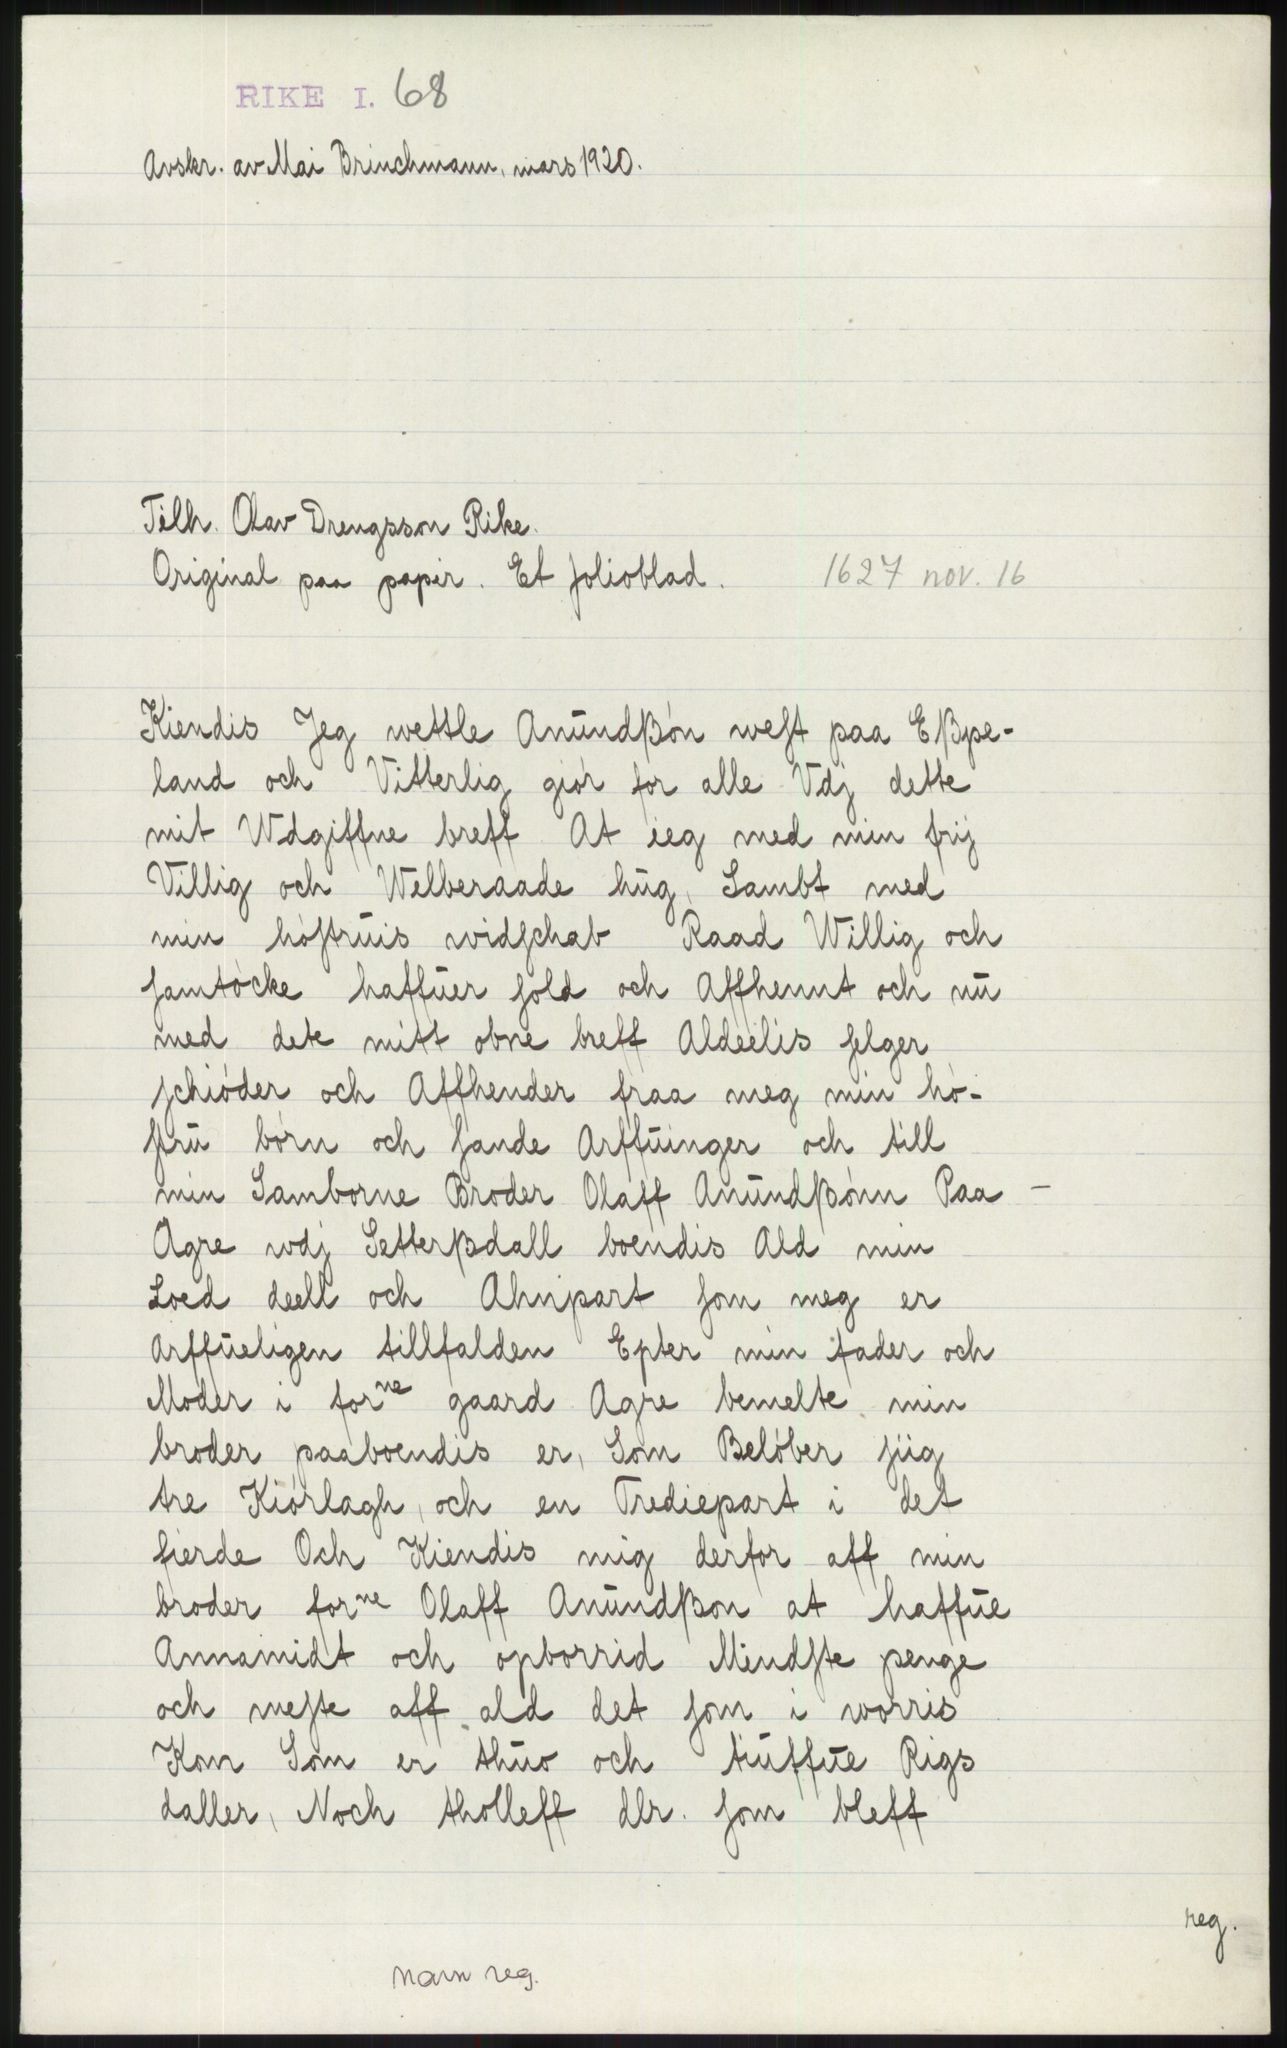 RIKE I. 68
Avskr. av Mai Brinchmann, mars 1920.
Tilh. Olav Drengsson Rike.
Original paa papir. Et folioblad. 1627 nov. 16
Kiendis Jeg wettle Anŭndßón weſt paa Eßpe-
land och Vitterlig giór for alle Vdj dette
mit Wdgiffne breff At ieg med min frij
Villig och Welberaade hŭg, Sambt med
min hóſtrŭis widſchab Raad Willig och
ſamtócke haffŭer ſold och Affhennt och nŭ
med dete mitt obne breff Aldeelis ſelger
ſchióder och Affhender fraa meg min hó-
ſtrŭ bórn och ſande Arffŭinger och till
min Samborne Broder Olaff Anŭndßónn Paa –
Agre wdj Setterßdall boendis Ald min
Loed deell och Ahnpart ſom meg er
Arffŭeligen tillfalden Epter min fader och
Moder i forne gaard Agre bemelte min
broder paaboendis er, Som Belóber ſiig
tre Kiórlagh, och en Trediepart i det
fierde Och Kiendis mig derfor aff min
broder forne Olaff Anŭndßon at haffŭe
Annamidt och opborrid Mindſte penge
och meſte aff ald det ſom i worris
Kom Som er thŭo och tiŭffŭe Rigs
daller, Noch tholleff dlr. ſom bleff
reg.
navn reg.